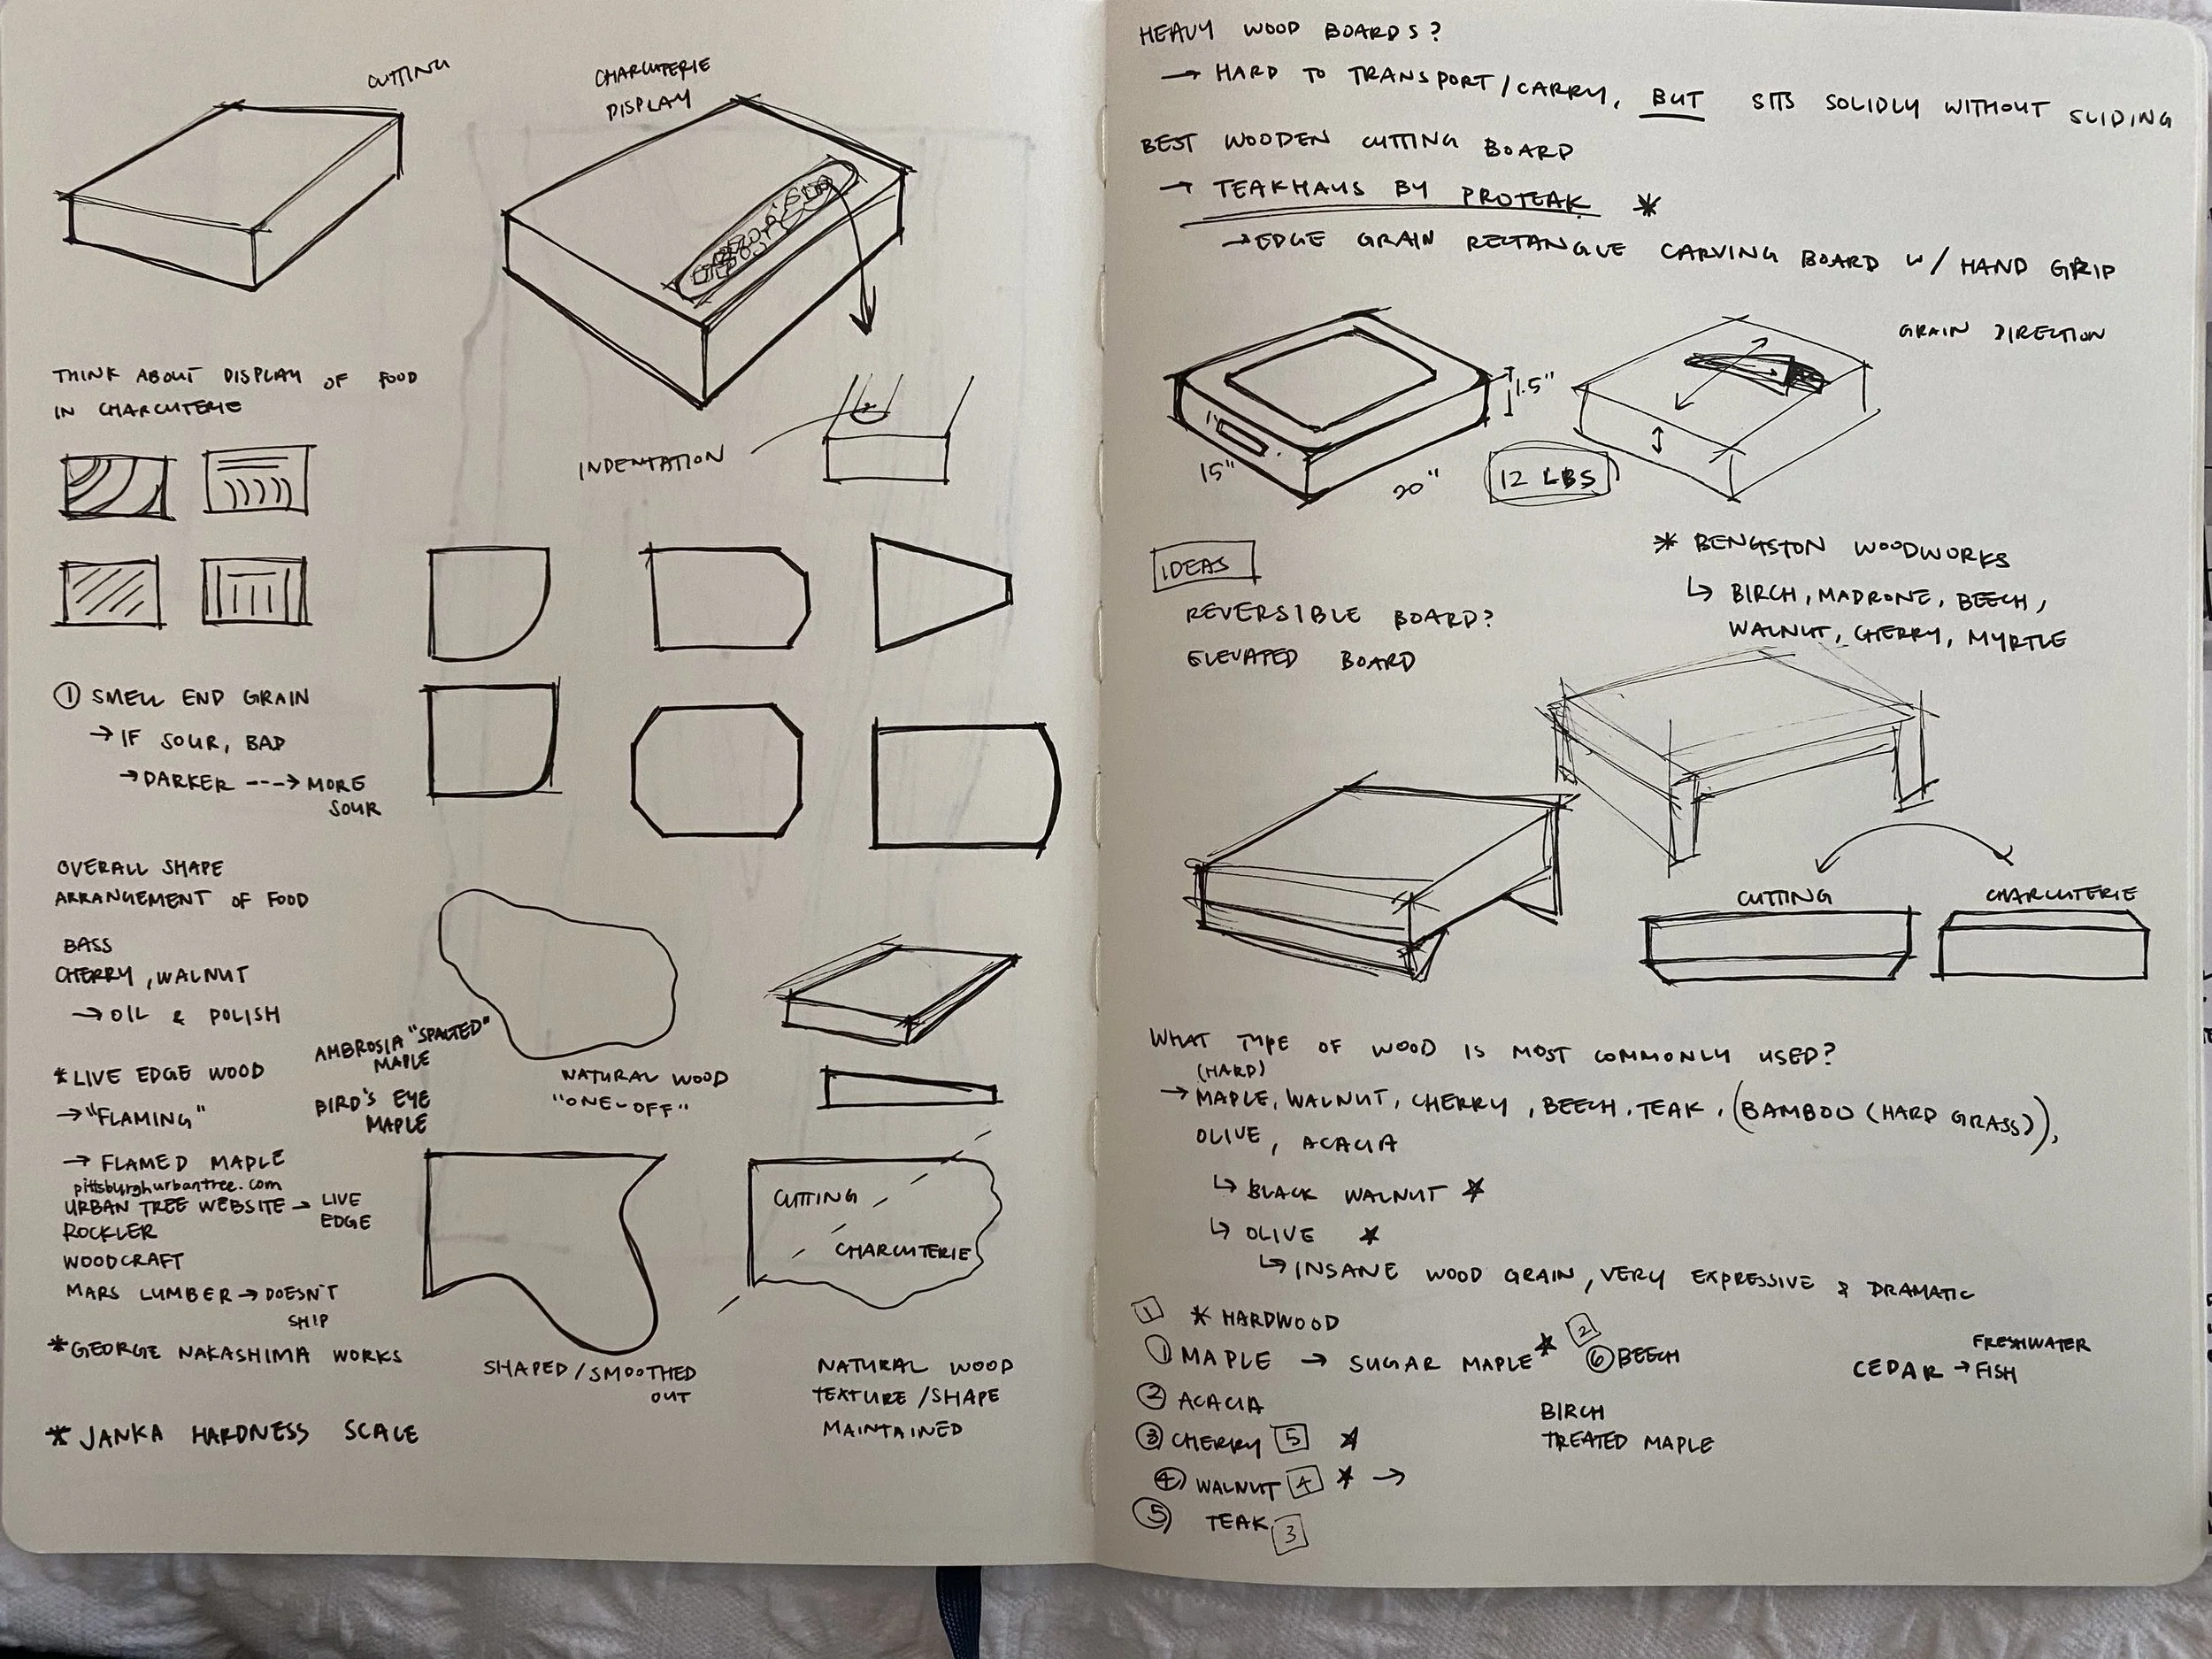 CUTTING
CHARCUTERIE
DISPLAY
THINK ABOUT DISPLAY OF FOOD
IN CHARCUTERIE
INDENTATION
① SMELL END GRAIN
→ IF SOUR, BAD
→ DARKER ---> MORE
SOUR
OVERALL SHAPE
ARRANGEMENT OF FOOD
BASS
CHERRY, WALNUT
→ OIL & POLISH
* LIVE EDGE WOOD
→ "FLAMING"
AMBROSIA "SPALTED"
MAPLE
BIRD'S EYE
MAPLE
→ FLAMED MAPLE
pittsburghurbantree.com
URBAN TREE WEBSITE → LIVE
EDGE
ROCKLER
WOODCRAFT
MARS LUMBER → DOESN'T
SHIP
* GEORGE NAKASHIMA WORKS
* JANKA HARDNESS SCALE
NATURAL WOOD
"ONE-OFF"
SHAPED/SMOOTHED
OUT
CUTTING
CHARCUTERIE
NATURAL WOOD
TEXTURE/SHAPE
MAINTAINED
HEAVY WOOD BOARDS?
→ HARD TO TRANSPORT/CARRY, BUT SITS SOLIDLY WITHOUT SLIDING
BEST WOODEN CUTTING BOARD
→ TEAKHAUS BY PROTEAK *
→ EDGE GRAIN RECTANGLE CARVING BOARD W/ HAND GRIP
1.5"
15"
20"
12 LBS
GRAIN DIRECTION
IDEAS
REVERSIBLE BOARD?
ELEVATED BOARD
* BENGSTON WOODWORKS
↳ BIRCH, MADRONE, BEECH,
WALNUT, CHERRY, MYRTLE
CUTTING
CHARCUTERIE
WHAT TYPE OF WOOD IS MOST COMMONLY USED?
(HARD)
→ MAPLE, WALNUT, CHERRY, BEECH, TEAK, (BAMBOO (HARD GRASS)),
OLIVE, ACACIA
↳ BLACK WALNUT ★
↳ OLIVE ★
↳ INSANE WOOD GRAIN, VERY EXPRESSIVE & DRAMATIC
1 * HARDWOOD
① MAPLE → SUGAR MAPLE ★
② ACACIA
③ CHERRY 5 ★
④ WALNUT 4 ★ →
⑤ TEAK 3
2
⑥ BEECH
BIRCH
TREATED MAPLE
FRESHWATER
CEDAR → FISH